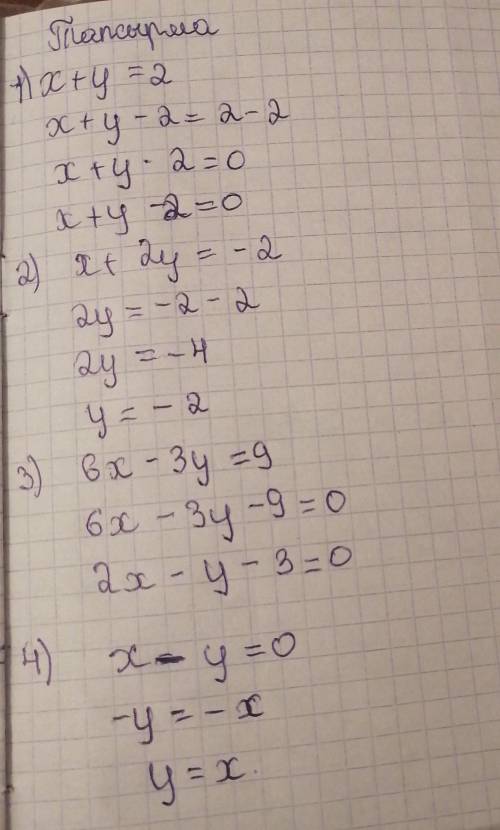 Тапсырма
1) x + y = 2
x + y - 2 = 2 - 2
x + y - 2 = 0
x + y - 2 = 0
2) x + 2y = -2
2y = -2 - 2
2y = -4
y = -2
3) 6x - 3y = 9
6x - 3y - 9 = 0
2x - y - 3 = 0
4) x - y = 0
-y = -x
y = x.